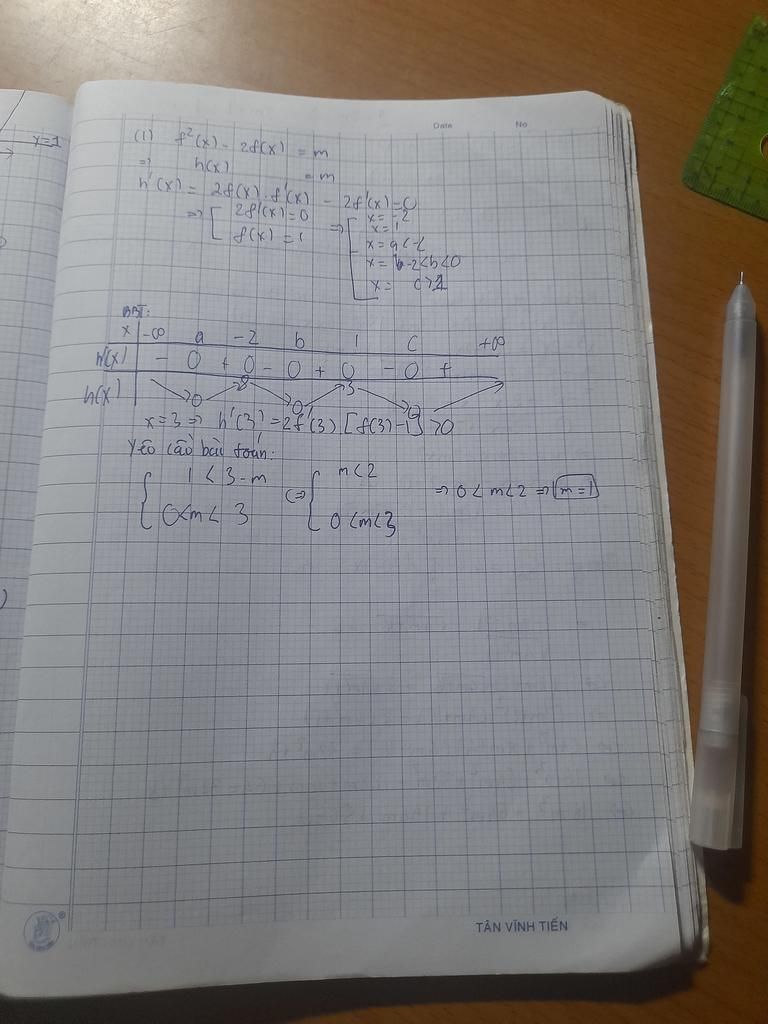 Date No
y=1
(1) f²(x) - 2f(x) = m
=> h(x) = m
h'(x) = 2f(x).f'(x) - 2f'(x)=0
=> [ 2f'(x)=0 => [ x = -2
x = 1
f(x) = 1
x = a < -2
x = b -2<b<0
x = c>1
BBT:
x -∞ a -2 b 1 c +∞
h'(x) - 0 + 0 - 0 + 0 - 0 +
h(x) 0 8 0 3
x=3 => h'(3) = 2f'(3).[f(3)-1] >0
Yêo cầo bài toán:
{ 1 < 3-m (=> { m<2 => 0<m<2 => m=1
0<m< 3 0<m<3
TÂN VĨNH TIẾN